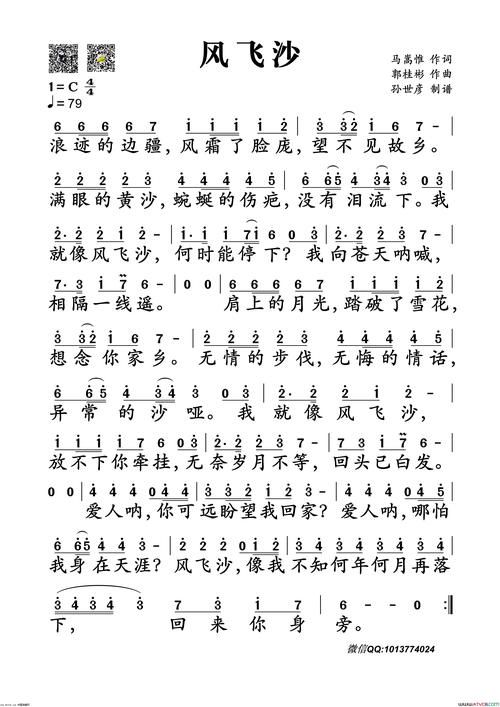 风飞沙
马嵩惟 作词
1=C 4/4
郭桂彬 作曲
♩=79
孙世彦 制谱
6 6 6 6 7 i i i i 2 3 3 2 i 6 7 -
浪迹的边疆,风霜了脸庞,望不见故乡。
2 2 2 2 3 4 4 4 4 5 5 6 5 4 3 4 3 0 3
满眼的黄沙,蜿蜒的伤疤,没有泪流下。我
2· 2 2 i 2 - i· i i 7 i 6 0 0 3 2· 2 2 3 i 7 0
就像风飞沙,何时能停下?我向苍天呐喊,
7· 3 i 7 - 0 0 6 6 6 6 7 i i i i 2
相隔一线遥。 肩上的月光,踏破了雪花,
3 3 2 i 6 7 - 2 2 2 2 3 4 4 4 4 5
想念你家乡。无情的步伐,无悔的情话,
6 6 5 4 3 4 3 0 3 2· 2 2 i 2 -
异常的沙哑。我就像风飞沙,
i i i i i 7 6 0 3 2· 2 2 2 2 3 7 3 i 7 6 -
放不下你牵挂,无奈岁月不等,回头已白发。
0 0 4 4 4 0 4 5 3 2 3 i 2 3 0 4 4 4 0 4 5
爱人呐,你可远盼望我回家?爱人呐,哪怕
6 6 5 4 4 3 - 2 2 2 0 i 2 3 4 3 4 3 4 3 4
我身在天涯?风飞沙,像我不知何年何月再落
3 4 3 4 3 - 7 3 i 7 6 - - 0
下, 回来你身旁。
微信QQ:1013774024